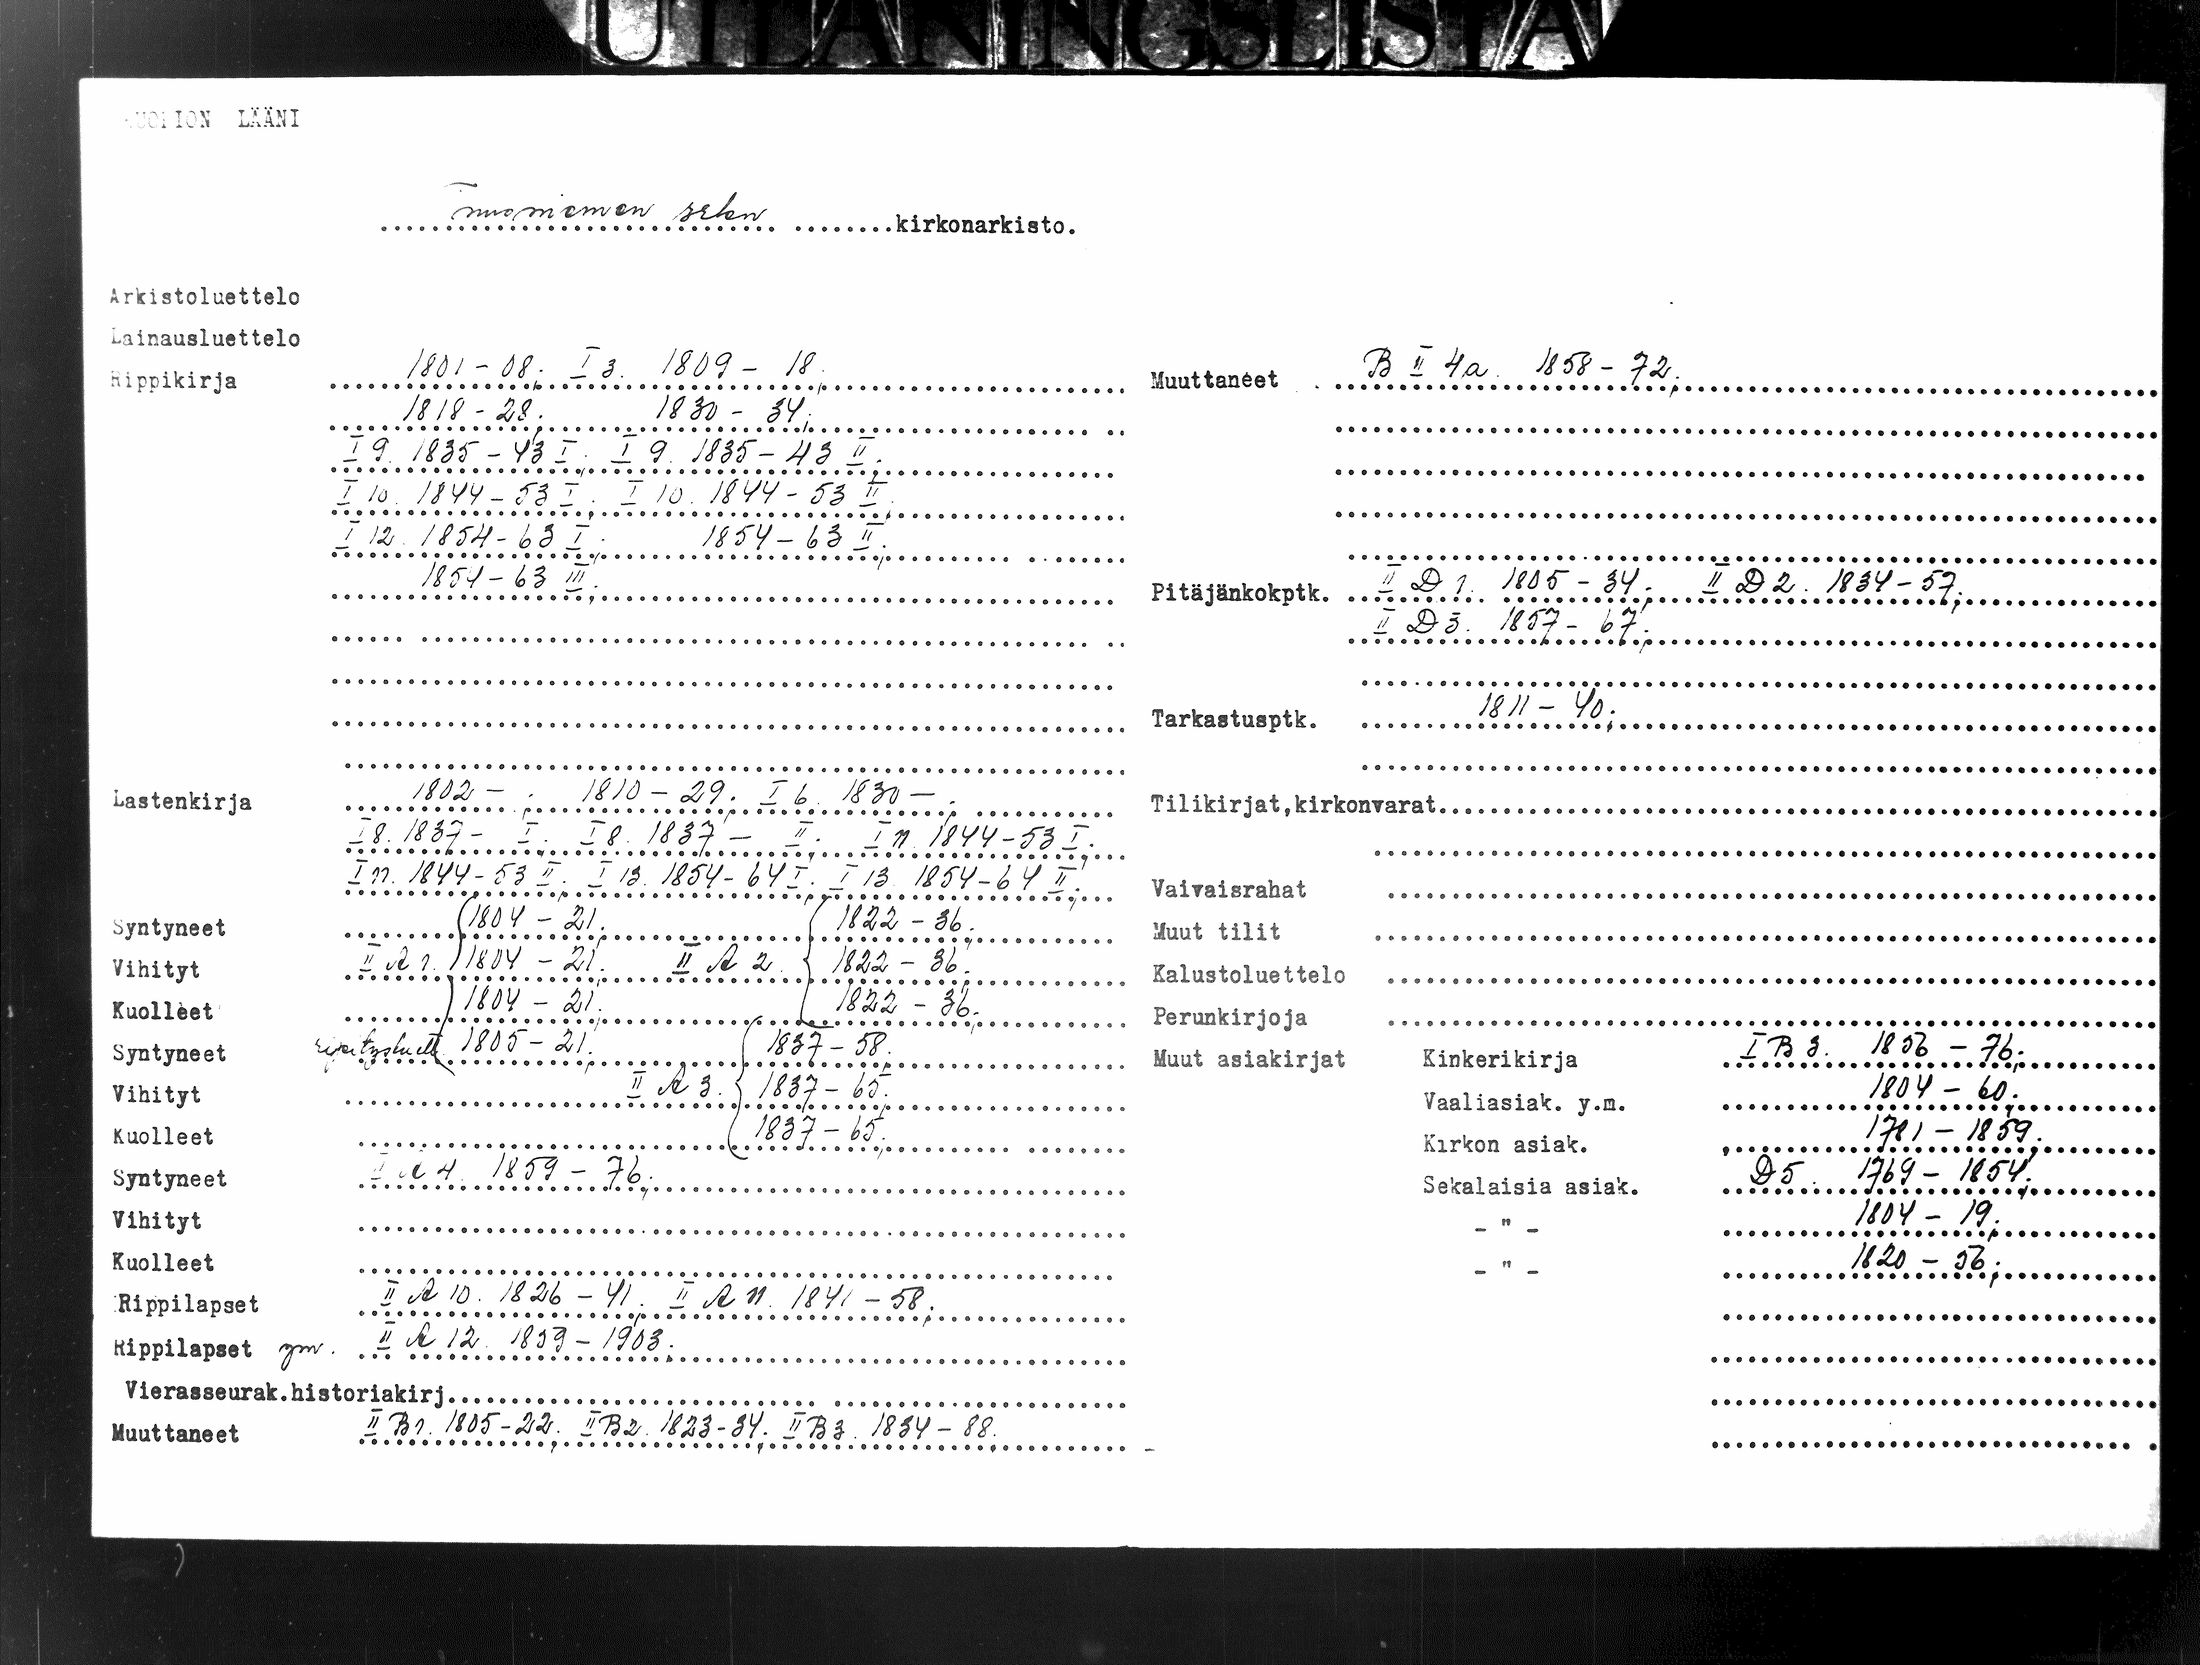 UTLÅNINGSLISTA
KUOPION LÄÄNI
Tuusniemen srkn kirkonarkisto.
Arkistoluettelo
Lainausluettelo
Rippikirja 1801-08; I 3. 1809-18;
1818-28; 1830-34;
I 9. 1835-43 I; I 9. 1835-43 II;
I 10. 1844-53 I; I 10. 1844-53 II;
I 12. 1854-63 I; 1854-63 II;
1854-63 III;
Lastenkirja 1802- ; 1810-29; I 6. 1830- ;
I 8. 1837- I; I 8. 1837- II; I 11. 1844-53 I;
I 11. 1844-53 II; I 13. 1854-64 I; I 13. 1854-64 II;
Syntyneet 1804-21; 1822-36;
Vihityt II A 1. 1804-21; II A 2. 1822-36;
Kuolleet 1804-21; 1822-36;
Syntyneet 1805-21; 1837-58;
Vihityt II A 3. 1837-65;
Kuolleet 1837-65;
Syntyneet II A 4. 1859-76;
Vihityt
Kuolleet
Rippilapset II A 10. 1826-41; II A 11. 1841-58;
Rippilapset ym. II A 12. 1859-1903;
Vierasseurak.historiakirj.
Muuttaneet II B 1. 1805-22; II B 2. 1823-34; II B 3. 1834-88.
Muuttaneet B II 4a. 1858-72;
Pitäjänkokptk. II D 1. 1805-34; II D 2. 1834-57;
II D 3. 1857-67;
Tarkastusptk. 1811-40;
Tilikirjat,kirkonvarat
Vaivaisrahat
Muut tilit
Kalustoluettelo
Perunkirjoja
Muut asiakirjat Kinkerikirja I B 3. 1856-76;
Vaaliasiak. y.m. 1804-60;
Kirkon asiak. 1781-1859;
Sekalaisia asiak. D 5. 1769-1854;
- " - 1804-19;
- " - 1820-56;